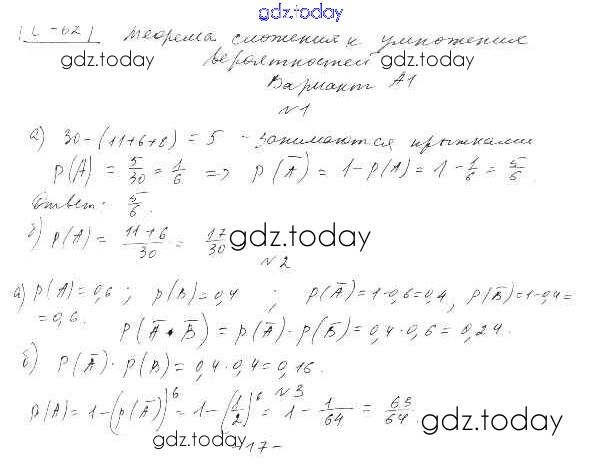 gdz.today
С-62 Теорема сложения и умножения
gdz.today вероятностей gdz.today
Вариант А1
№1
а) 30-(11+6+8) = 5 - занимаются прыжками
P(A) = 5/30 = 1/6 => P(Ā) = 1-P(A) = 1 - 1/6 = 5/6.
Ответ: 5/6.
б) P(A) = (11+6)/30 = 17/30 gdz.today
№2
а) P(A) = 0,6 ; P(B) = 0,4 ; P(Ā) = 1-0,6 = 0,4, P(B̄) = 1-0,4 =
= 0,6. P(Ā · B̄) = P(Ā) · P(B̄) = 0,4 · 0,6 = 0,24.
б) P(Ā) · P(B) = 0,4 · 0,4 = 0,16.
№3
P(A) = 1-(P(Ā))^6 = 1-(1/2)^6 = 1 - 1/64 = 63/64. gdz.today
gdz.today
-17-